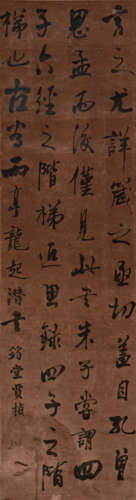 言之尤詳之亟切蓋自孔曾
思孟而後僅見此書朱子嘗謂四
子六經之階梯近思錄四子之階
梯也古而亭龍起潛堂賈楨